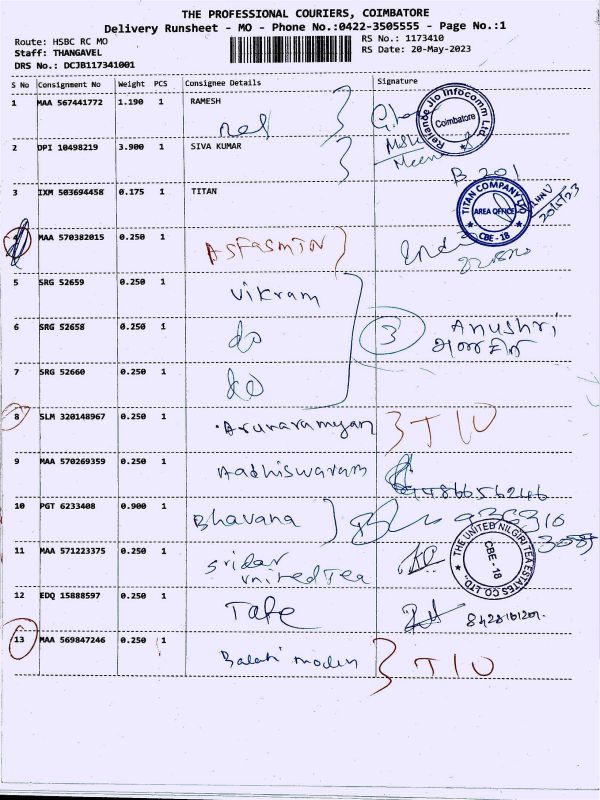 THE PROFESSIONAL COURIERS, COIMBATORE
Delivery Runsheet - MO - Phone No.:0422-3505555 - Page No.:1
Route: HSBC RC MO
RS No.: 1173410
Staff: THANGAVEL
RS Date: 20-May-2023
DRS No.: DCJB117341001
S No Consignment No Weight PCS Consignee Details Signature
1 MAA 567441772 1.190 1 RAMESH
Reliance Jio Infocomm Ltd.
Coimbatore
2 DPI 10498219 3.900 1 SIVA KUMAR
B 201
3 IXM 503694458 0.175 1 TITAN
TITAN COMPANY LTD
AREA OFFICE
CBE - 18
20/5/23
4 MAA 570382015 0.250 1 ASFASMIN
5 SRG 52659 0.250 1 Vikram
6 SRG 52658 0.250 1 do 3 Anushri
7 SRG 52660 0.250 1 do
8 SLM 320148967 0.250 1 Arunaramyan
9 MAA 570269359 0.250 1 Aadhiswaram
10 PGT 6233408 0.900 1 Bhavana
11 MAA 571223375 0.250 1 Sridar
United Tea
THE UNITED NILGIRI TEA ESTATES CO. LTD.,
CBE - 18
12 EDQ 15888597 0.250 1 Tafe
13 MAA 569847246 0.250 1 Balati